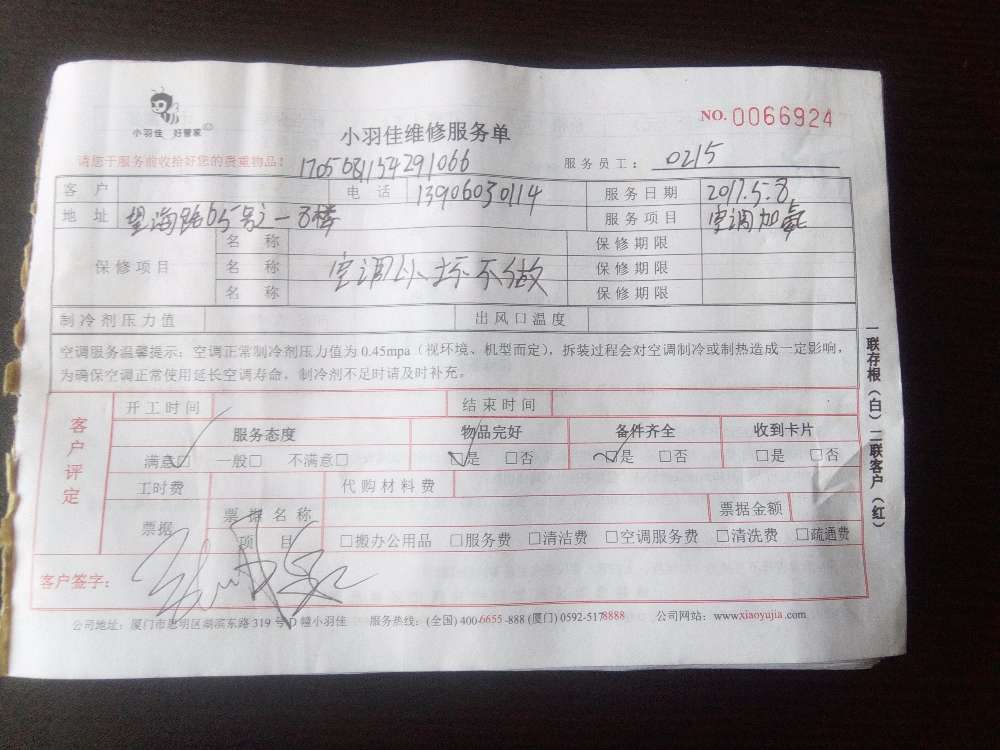 小羽佳 好管家
小羽佳维修服务单
NO. 0066924
请您于服务前收拾好您的贵重物品!
170508154291066
服务员工: 0215
客户 电话 13906030114 服务日期 2017.5.8
地址 望海路65号之一8楼 服务项目 空调加氟
保修项目
名称 保修期限
名称 空调以坏不做 保修期限
名称 保修期限
制冷剂压力值 出风口温度
空调服务温馨提示:空调正常制冷剂压力值为0.45mpa(视环境、机型而定),拆装过程会对空调制冷或制热造成一定影响,
为确保空调正常使用延长空调寿命,制冷剂不足时请及时补充。
客户评定
开工时间 结束时间
服务态度 物品完好 备件齐全 收到卡片
满意□ 一般□ 不满意□ □是 □否 □是 □否 □是 □否
工时费 代购材料费
票据 票据名称 票据金额
项目 □搬办公用品 □服务费 □清洁费 □空调服务费 □清洗费 □疏通费
客户签字:
公司地址:厦门市思明区湖滨东路 319 号 D 幢小羽佳 服务热线:(全国) 400-6655-888 (厦门) 0592-5178888 公司网站:www.xiaoyujia.com
一联存根(白)二联客户(红)